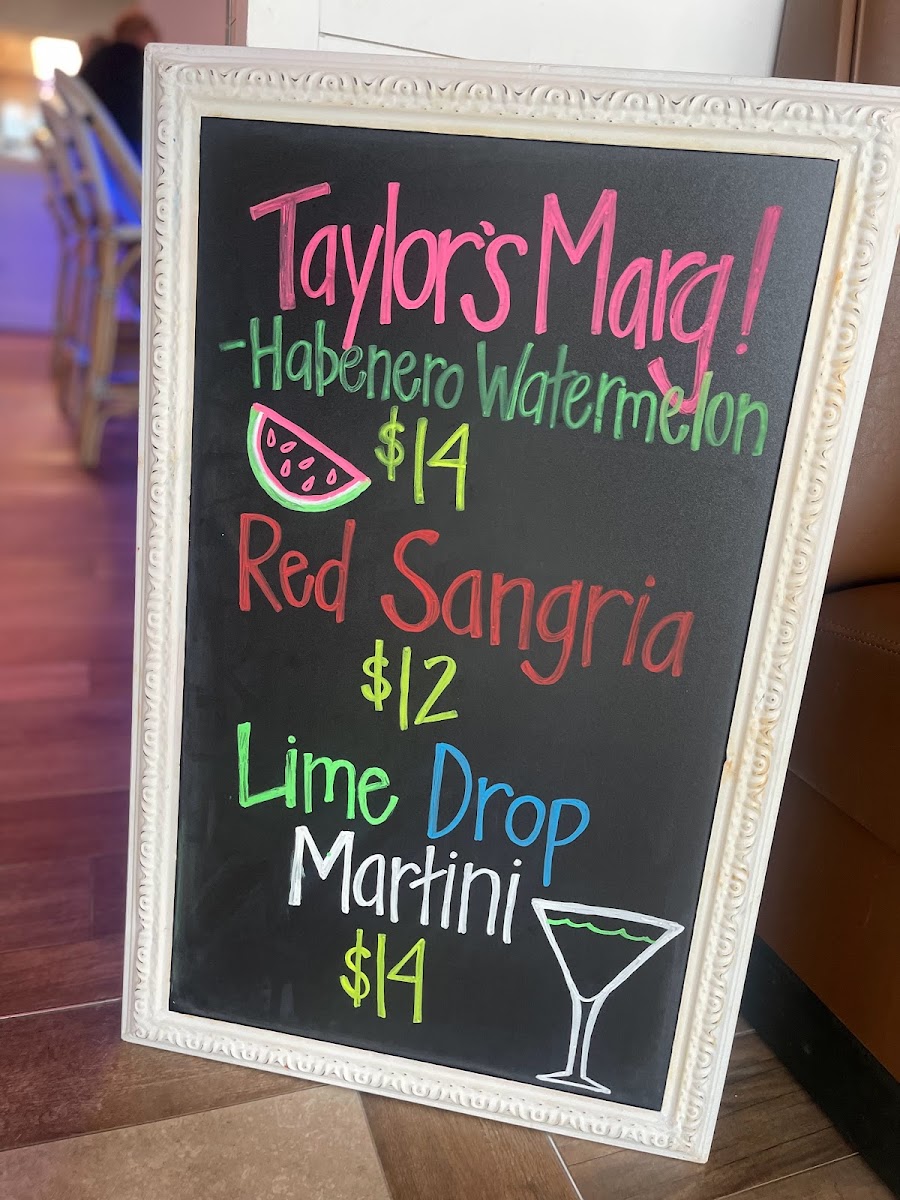 Taylor's Marg!
-Habenero Watermelon
$14
Red Sangria
$12
Lime Drop
Martini
$14